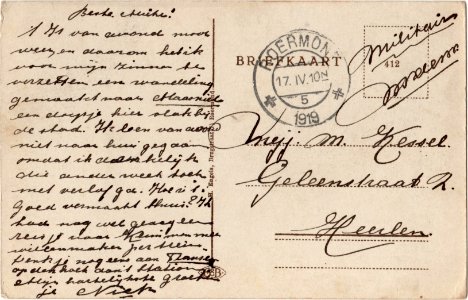 Beste Mieke!
't Is van avond mooi
weer en daarom heb ik
voor mijn zinnen te
verzetten een wandeling
gemaakt naar Maasniel
een dorpje hier vlak bij
de stad. Ik ben van avond
niet naar huis gegaan
omdat ik
die andere week toch
met verlof ga. Hoe is 't?
Goed vermaakt thuis? Ik
had nog wel graag een
reisje naar
willen maken per trein.
Denk je nog eens aan
op den hoek aan 't Station
Mijn hartelijkste groeten
je
BRIEFKAART
ROERMOND
17.IV.10N
5
1919
412
Militair
Mej. M. Kessel.
Geleenstraat 2.
Heerlen.